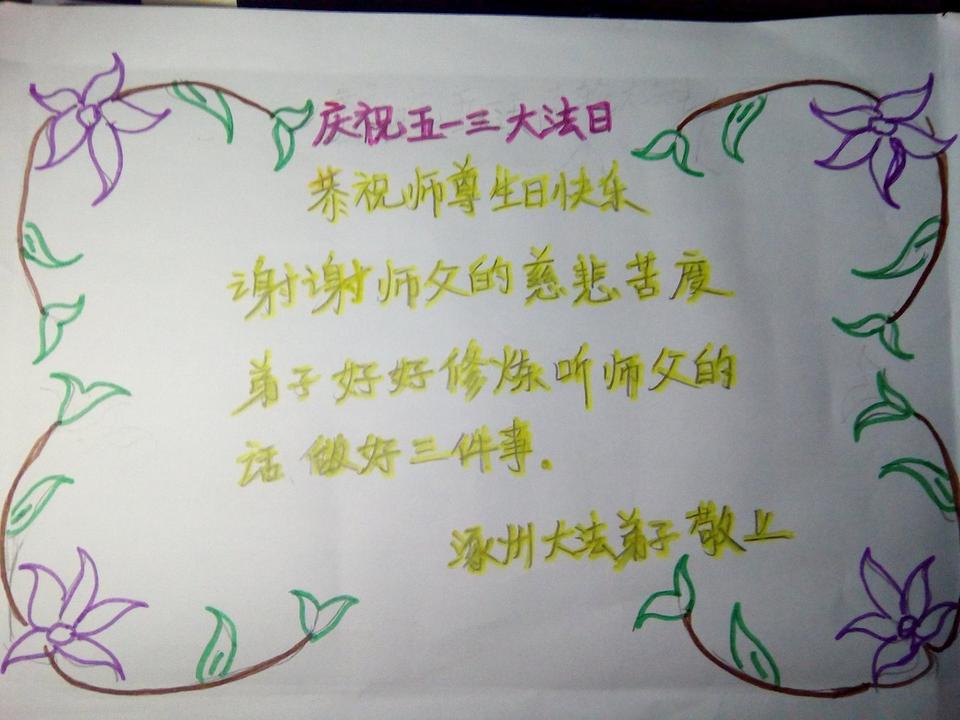 庆祝五一三大法日
恭祝师尊生日快乐
谢谢师父的慈悲苦度
弟子好好修炼听师父的
话 做好三件事.
涿州大法弟子敬上